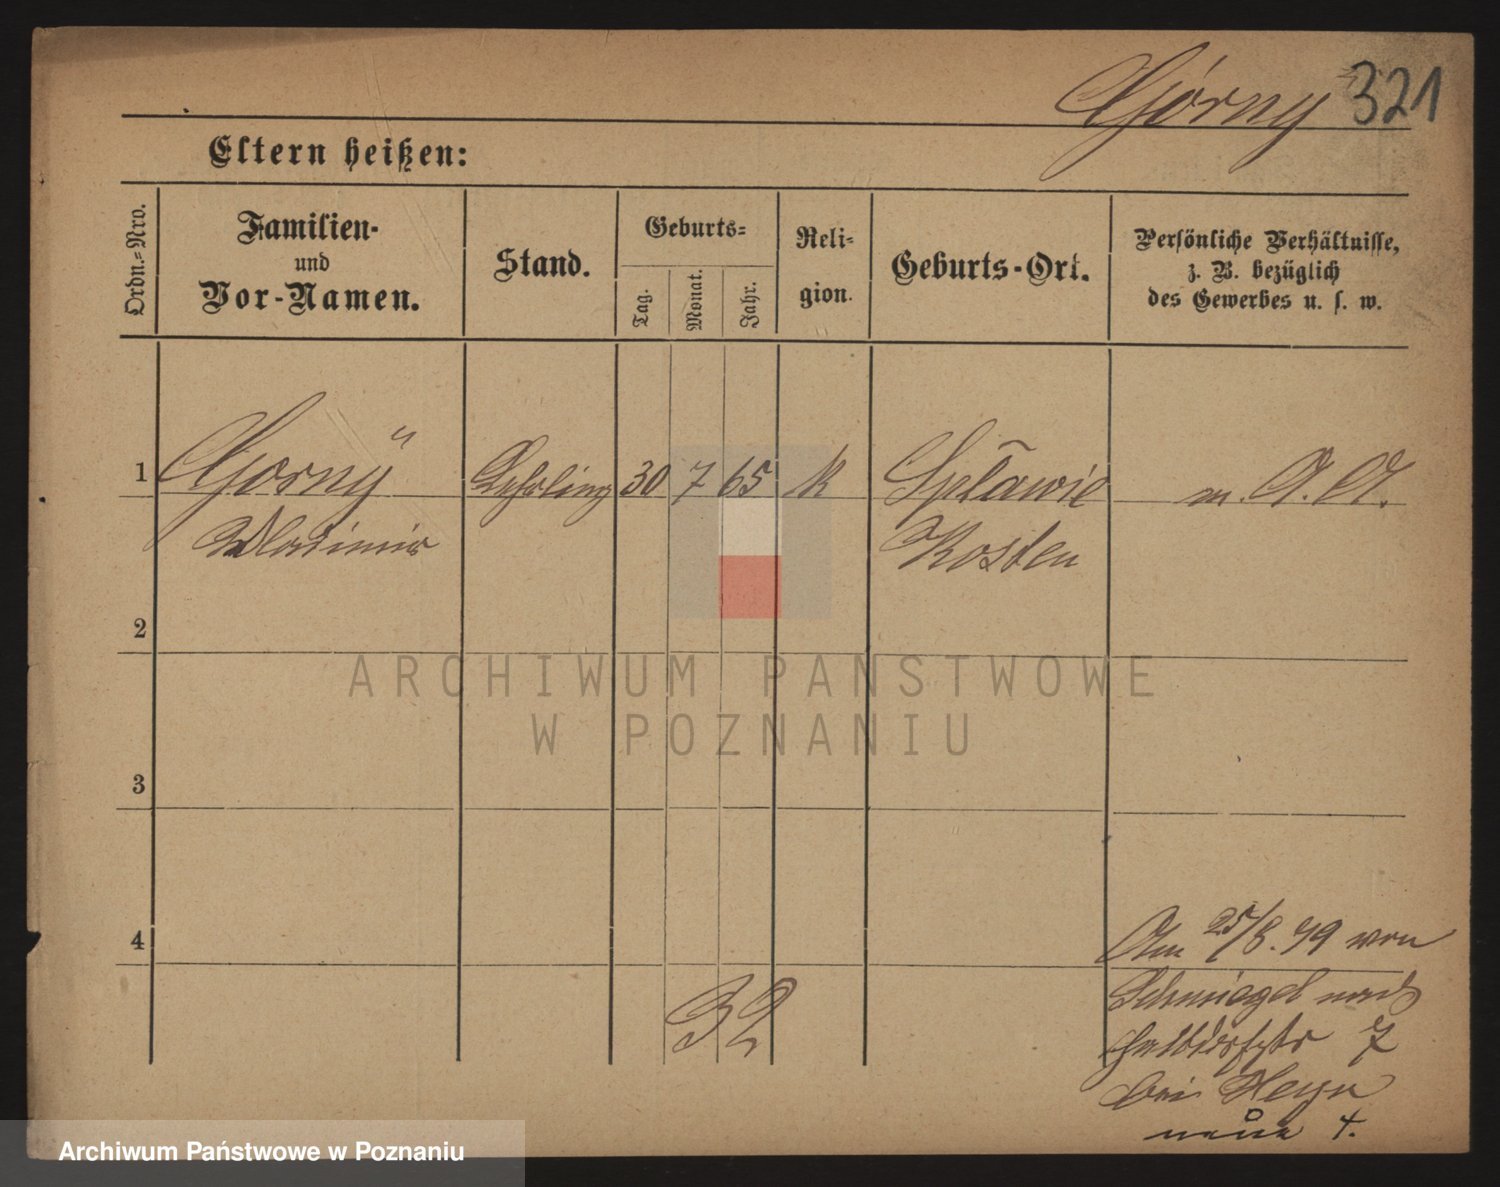 Górny 321
Eltern heißen:
Ordn.=Nro.
Familien-
und
Vor-Namen.
Stand.
Geburts=
Tag.
Monat.
Jahr.
Reli=
gion.
Geburts-Ort.
Persönliche Verhältnisse,
z. B. bezüglich
des Gewerbes u. s. w.
1 Gorny Lehrling 30 7 65 K Splawie m. A. A.
Wladimir Kosten
2
3
4
Am 25/8. 79 von
Schmiegel nach
Halbdorfstr 7
bei Heyn
neue 4.
32
ARCHIWUM PAŃSTWOWE
W POZNANIU
Archiwum Państwowe w Poznaniu